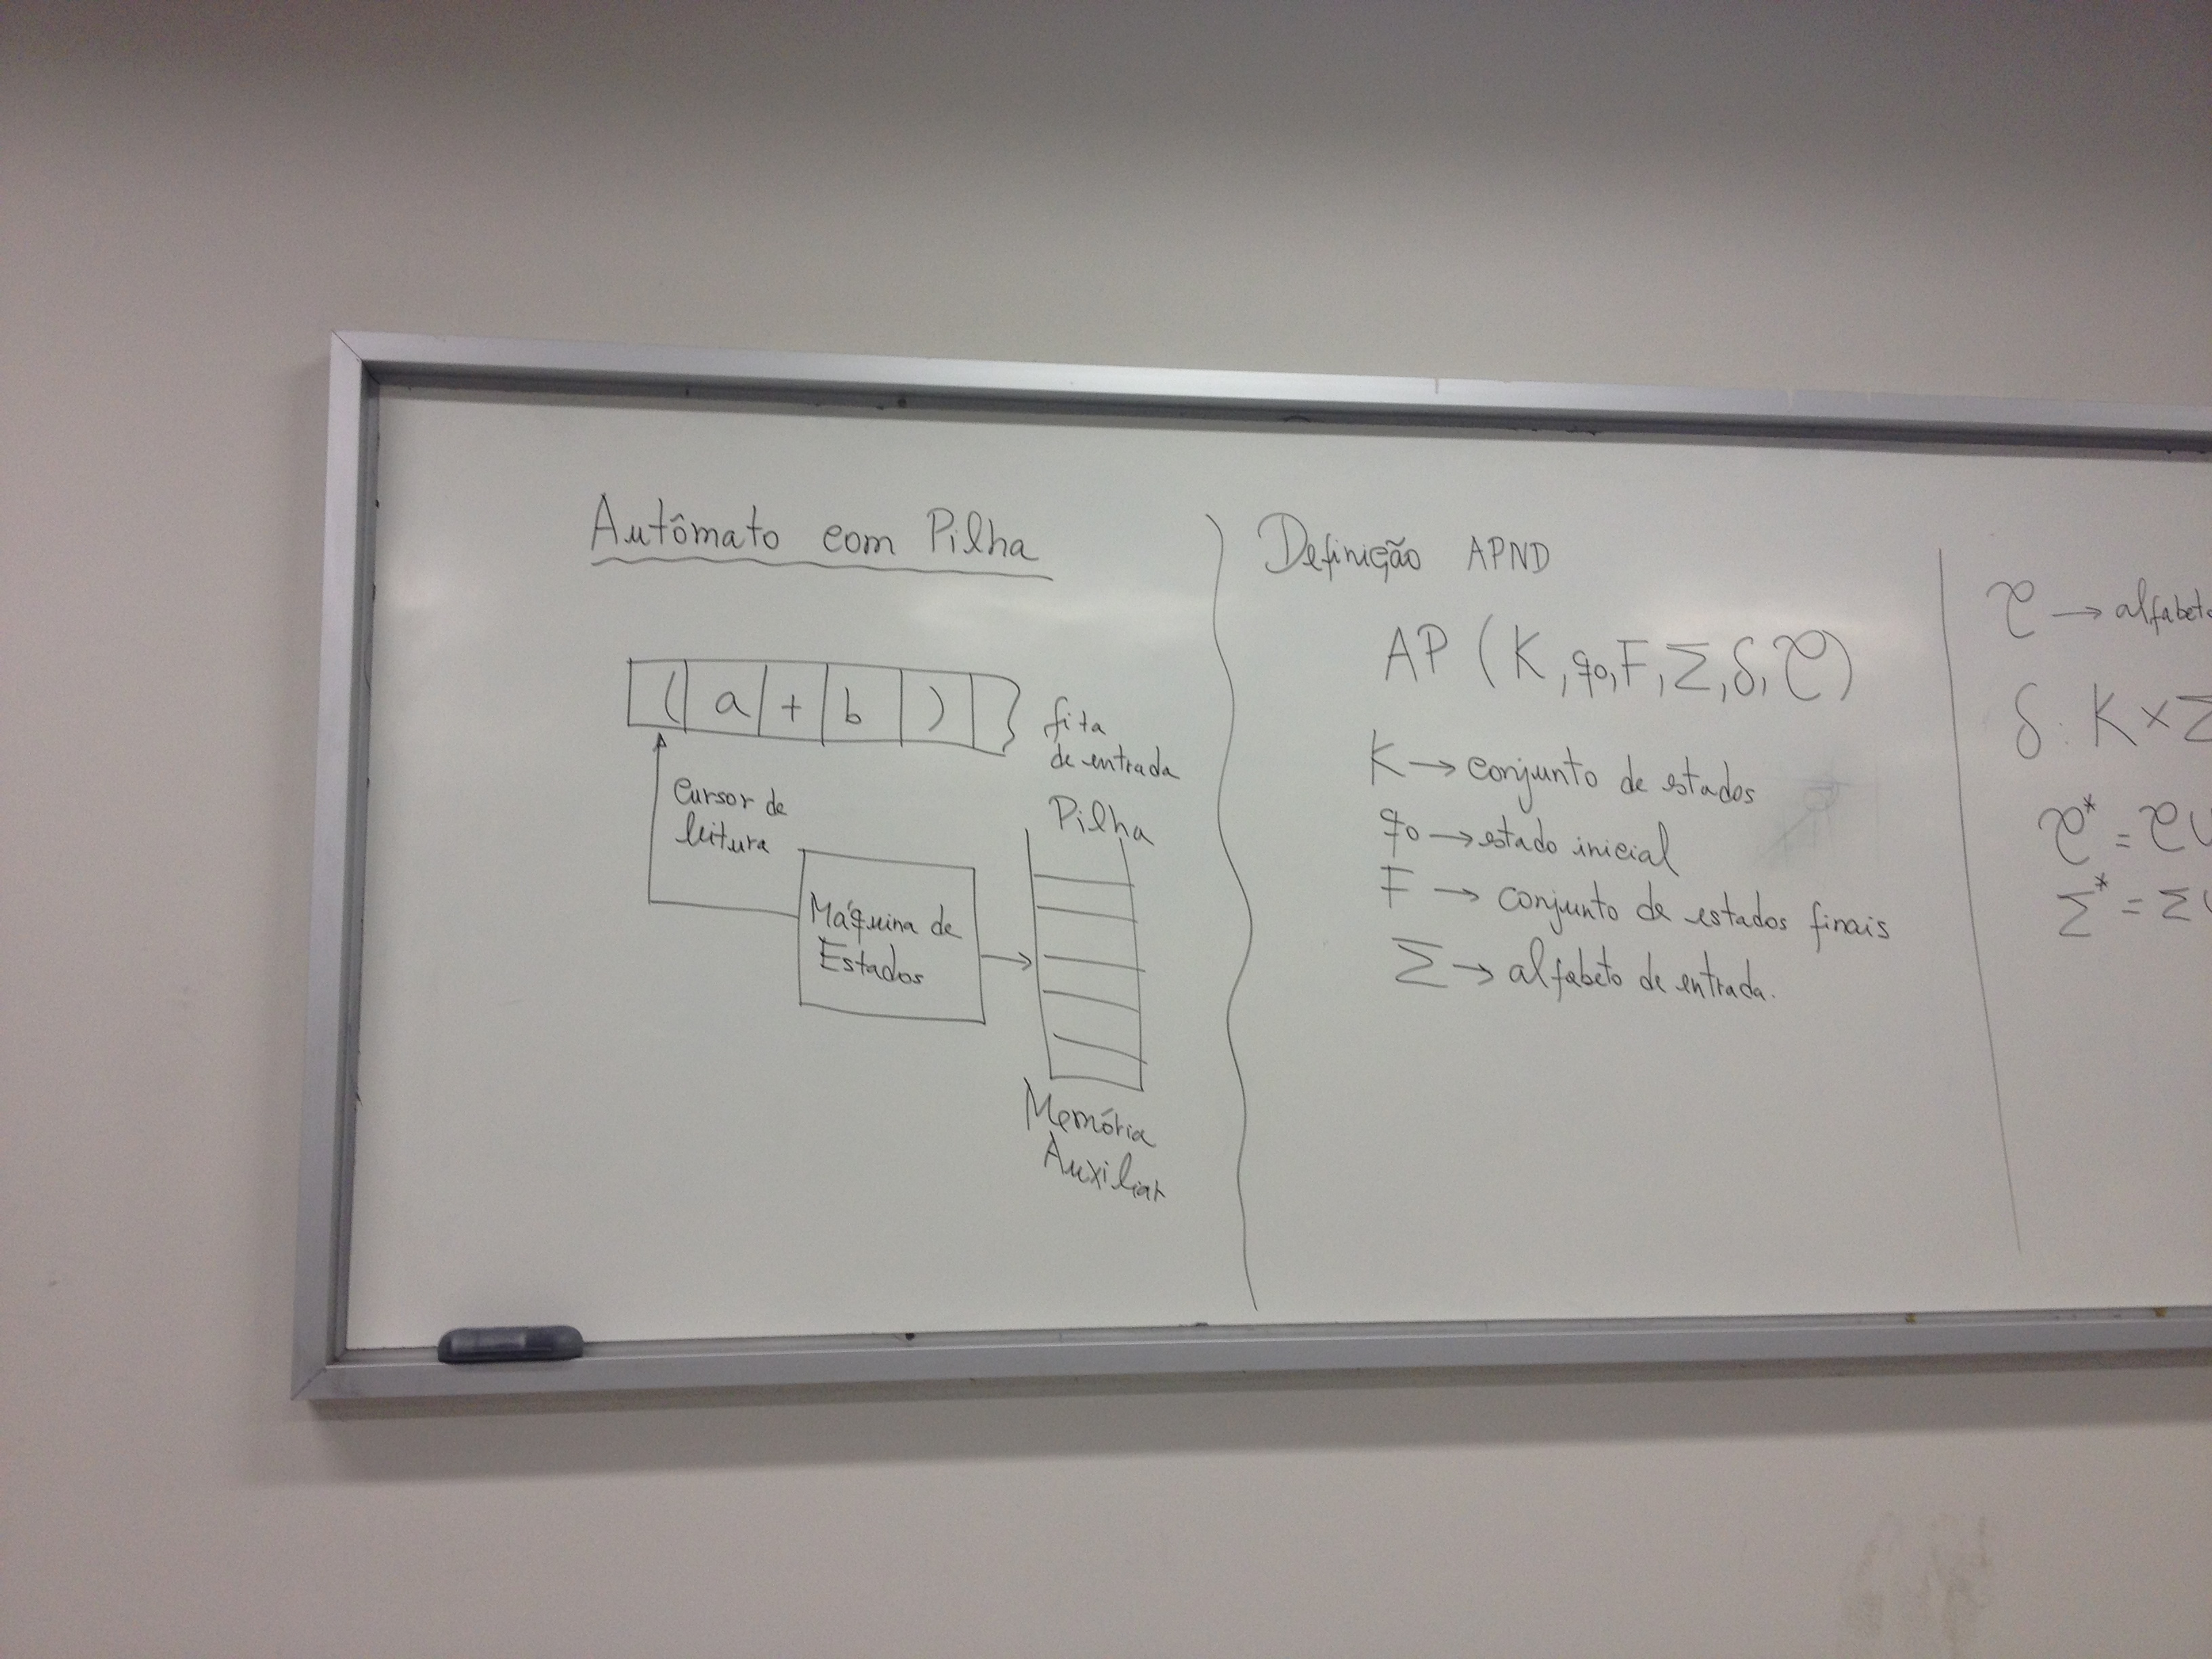 Autômato com Pilha
( a + b )
fita
de entrada
Cursor de
leitura
Máquina de
Estados
Pilha
Memória
Auxiliar
Definição APND
AP (K, q0, F, Σ, δ, τ)
K → conjunto de estados
q0 → estado inicial
F → conjunto de estados finais
Σ → alfabeto de entrada.
τ → alfabeto
δ: K × Σ
τ* = τ
Σ* = Σ